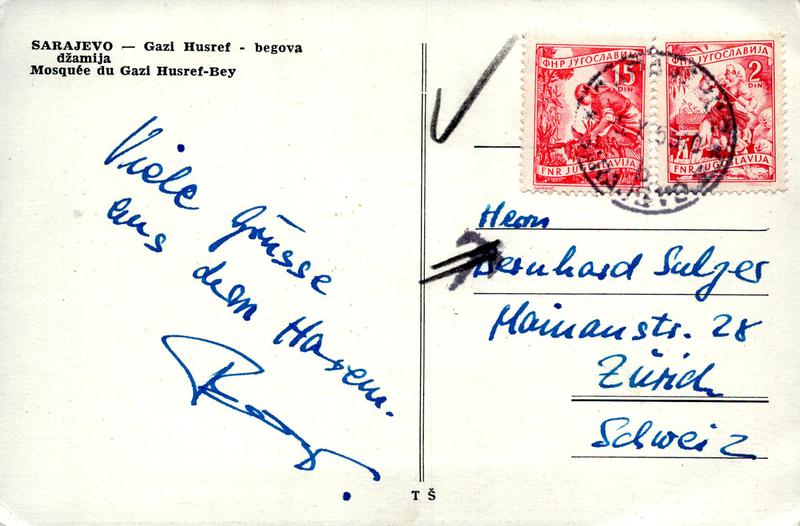 SARAJEVO — Gazi Husref - begova
džamija
Mosquée du Gazi Husref-Bey
Viele Grüsse
aus dem Harem.
ФНР ЈУГОСЛАВИЈА
15
DIN
FNR JUGOSLAVIJA
ФНР ЈУГОСЛАВИЈА
2
DIN
FNR JUGOSLAVIJA
Herrn
Bernhard Sulzer
Mainaustr. 28
Zürich
Schweiz
T Š